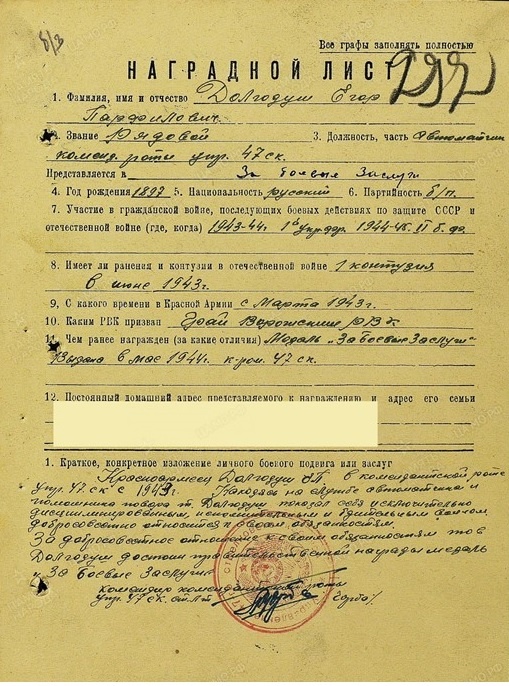 б/з
Все графы заполнять полностью
НАГРАДНОЙ ЛИСТ
1. Фамилия, имя и отчество Долгодуш Егор
Парфилович
2. Звание Рядовой 3. Должность, часть Автоматчик
комен. роты упр. 47 ск.
Представляется в За боевые Заслуги
4. Год рождения 1897 5. Национальность русский 6. Партийность б/п.
7. Участие в гражданской войне, последующих боевых действиях по защите СССР и
отечественной войне (где, когда) 1943-44г. 1й укр. фр. 1944-45.
8. Имеет ли ранения и контузии в отечественной войне 1 контузия
в июне 1943г.
9. С какого времени в Красной Армии с Марта 1943г.
10. Каким РВК призван
11. Чем ранее награжден (за какие отличия) Медаль "За Боевые Заслуги"
Выдана в мае 1944г. 47 ск.
12. Постоянный домашний адрес представляемого к награждению и адрес его семьи
1. Краткое, конкретное изложение личного боевого подвига или заслуг
Красноармеец Долгодуш в комендантской роте
упр. 47 ск с 1943г. Находясь на службе автоматчика и
помошника повара т. Долгодуш показал себя исключительно
дисциплинированным, исполнительным и бдительным бойцом,
добросовестно относится к своим обязанностям.
За добросовестное отношение к своим обязанностям тов
Долгодуш достоин правительственной награды медаль
"За Боевые Заслуги"
Командир комендантской роты
упр. 47 ск. ст. л-т Горба